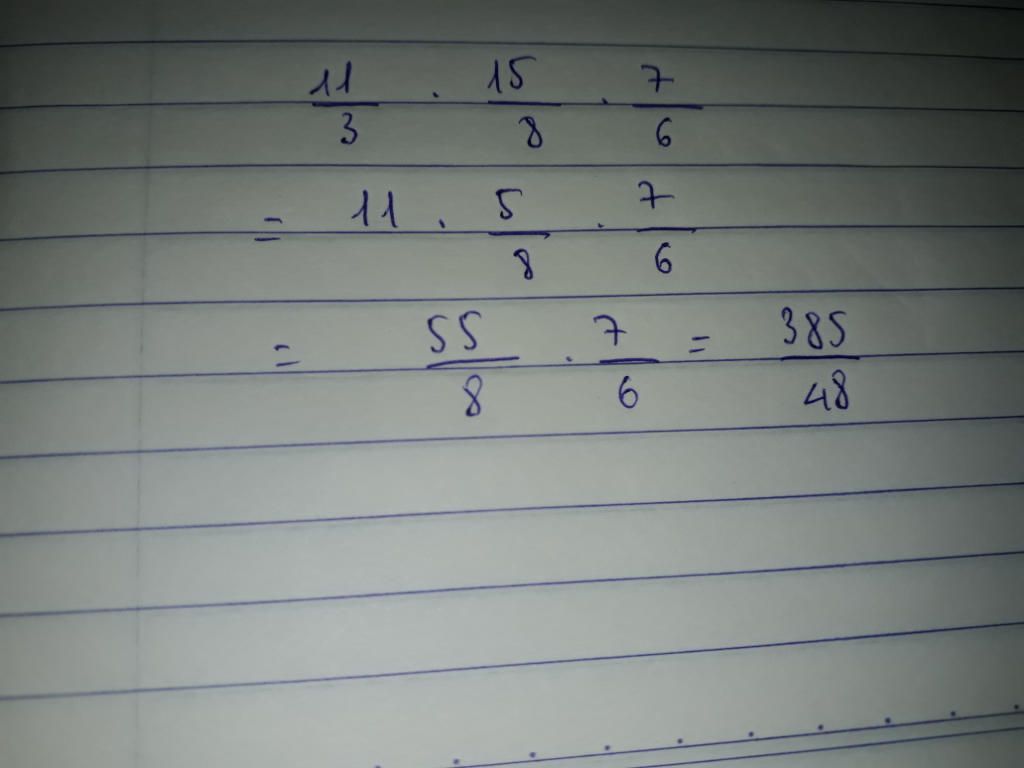 11/3 · 15/8 · 7/6
= 11 · 5/8 · 7/6
= 55/8 · 7/6 = 385/48